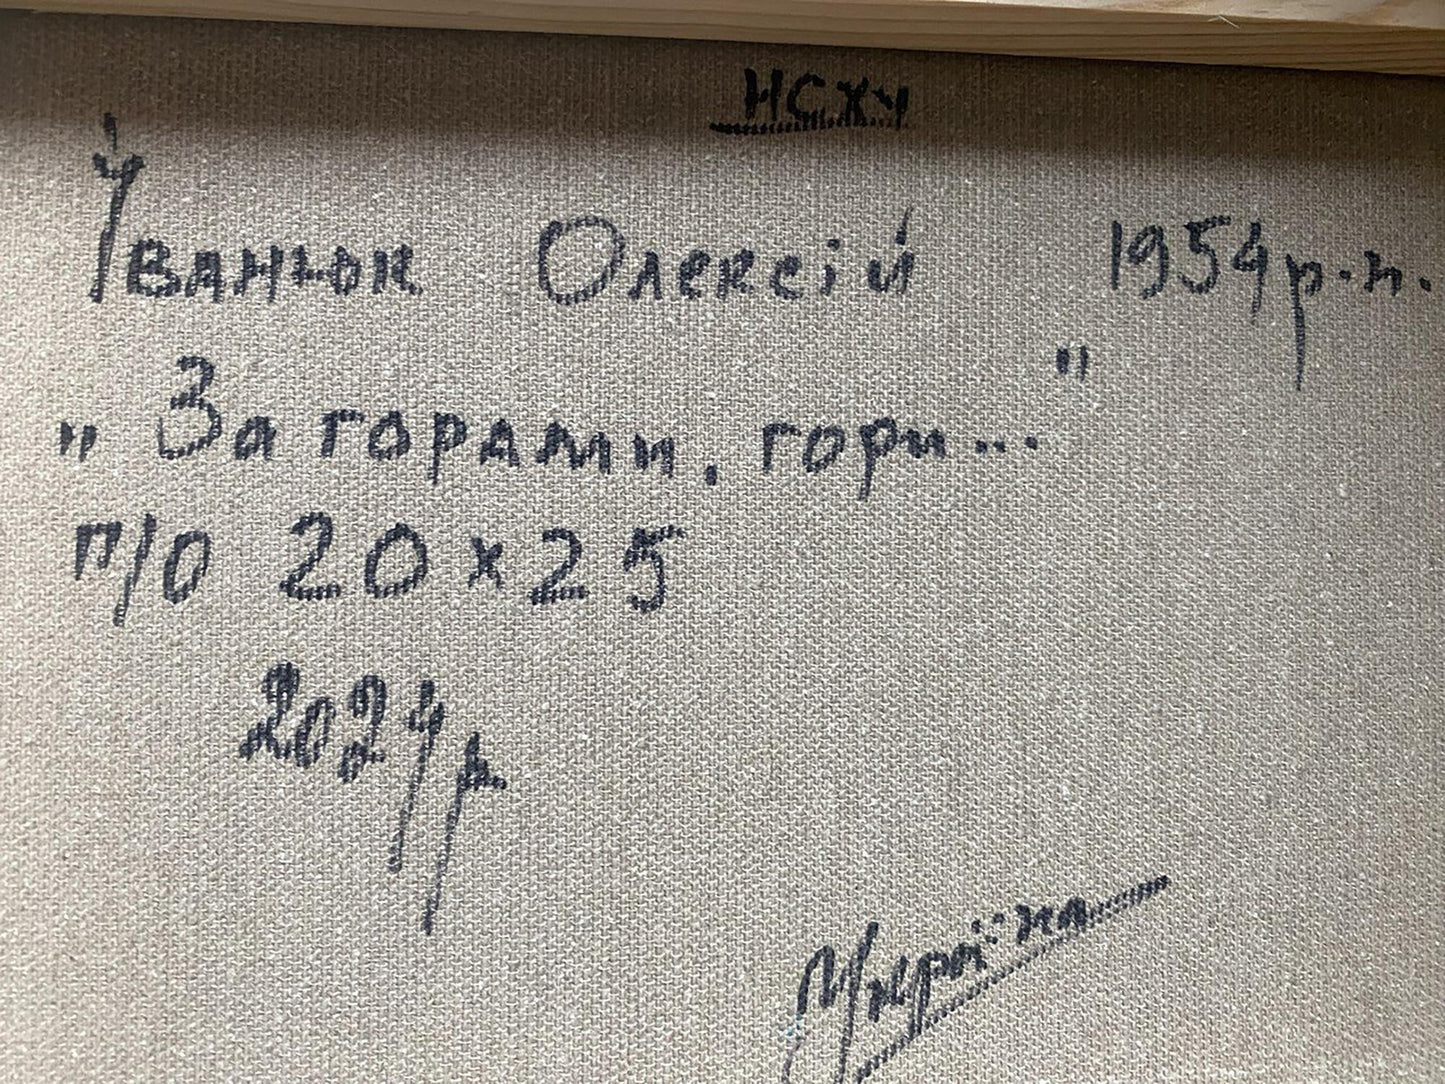 НСХУ
Іванюк Олексій 1954 р.н.
„За горами, гори..."
п/о 20×25
2024р
Україна